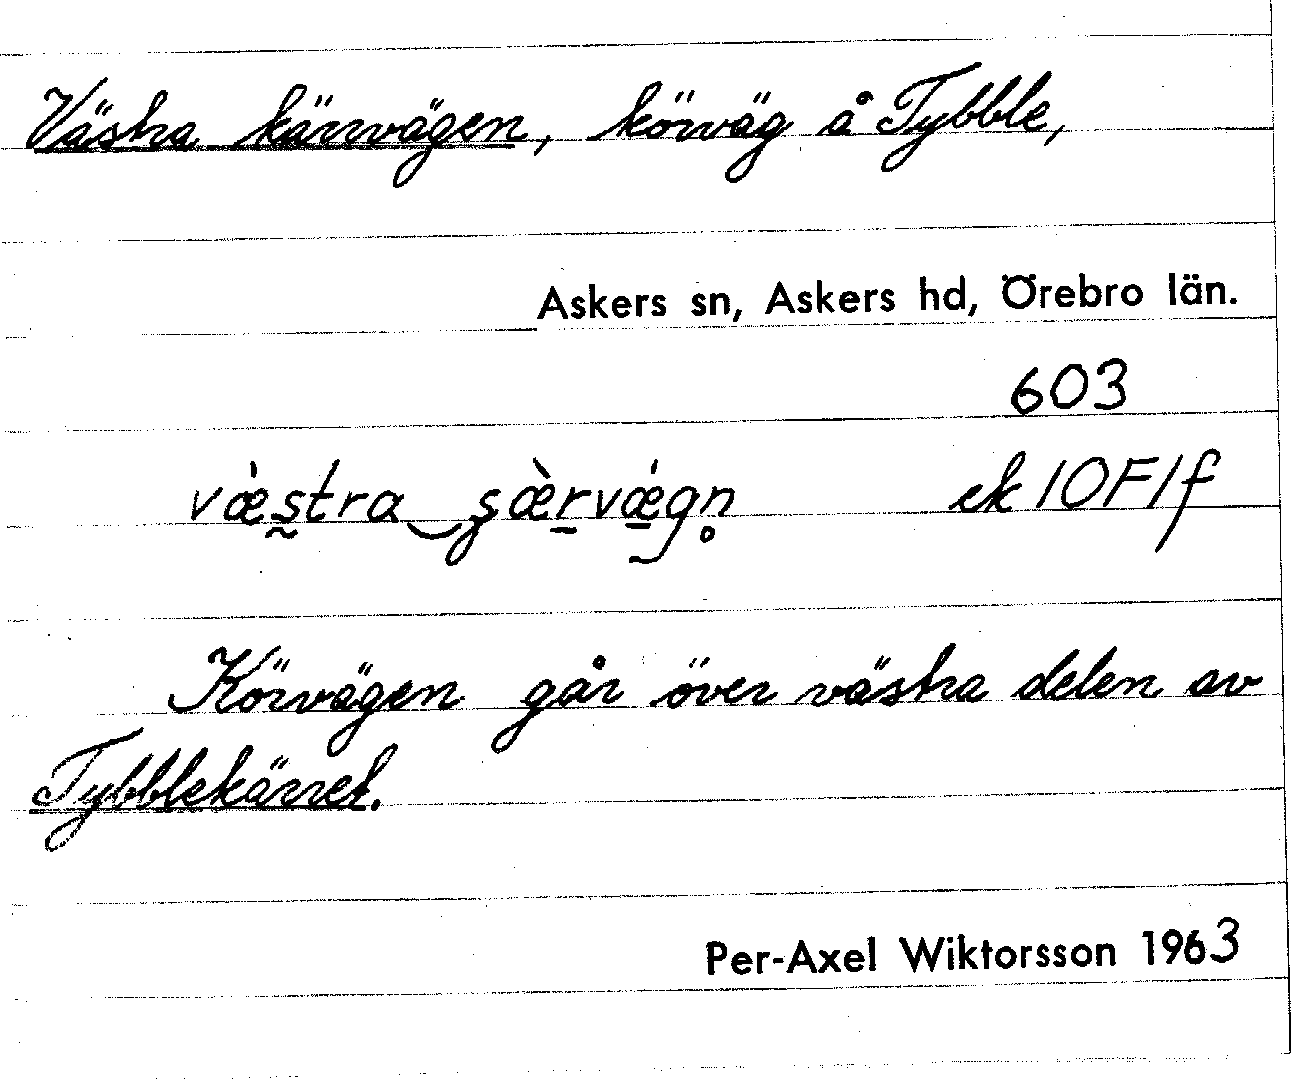 Västra kärrvägen, körväg å Tybble,
Askers sn, Askers hd, Örebro län.
603
væ̀stra şæ̀rvǽgn̥ ek 10F1f
Körvägen går över västra delen av
Tybblekärret.
Per-Axel Wiktorsson 1963